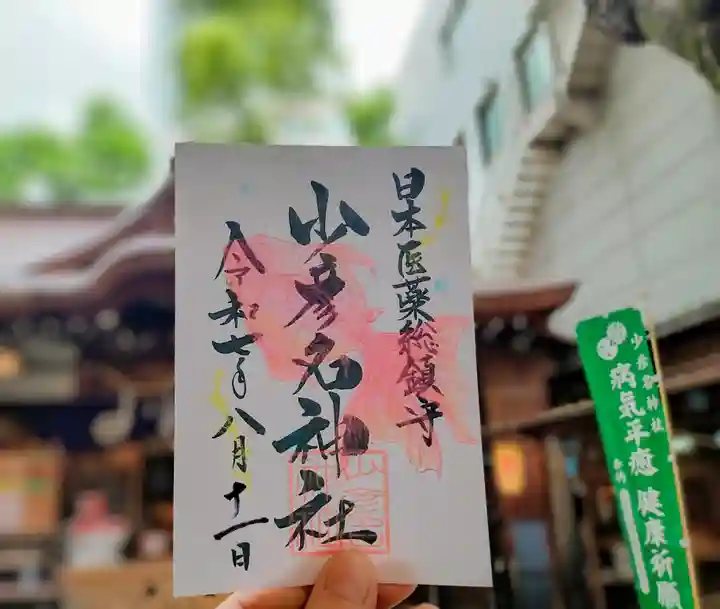 日本医薬総鎮守
少彦名神社
令和七年八月十一日
少彦名神社
病気平癒 健康祈願